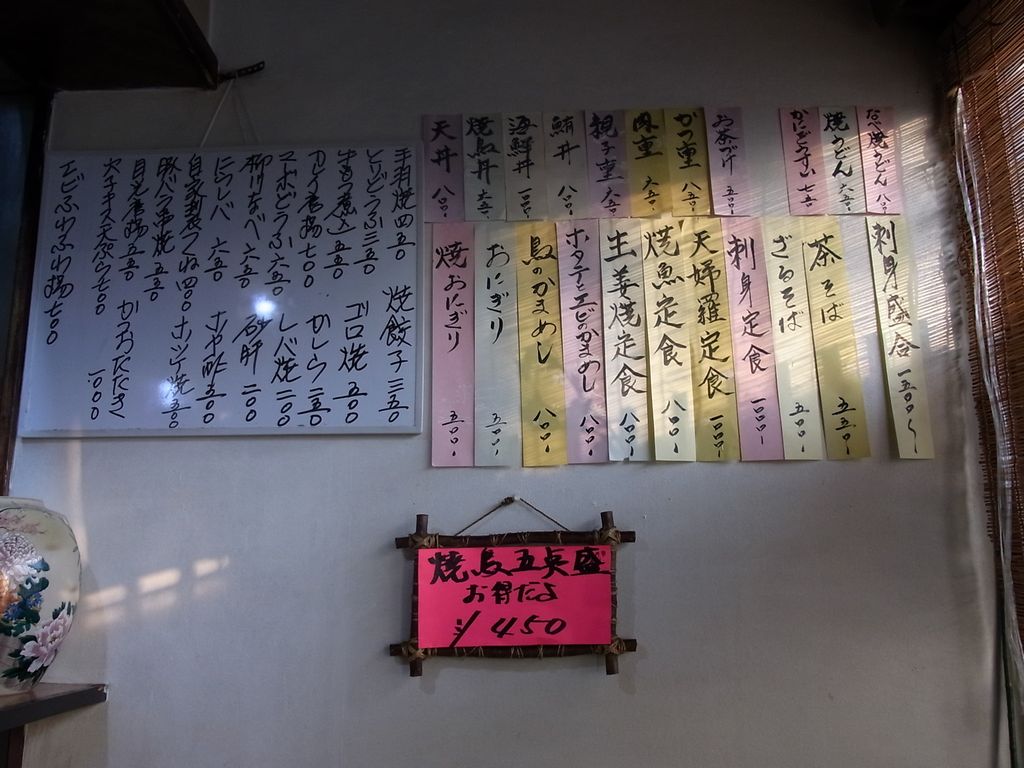 手羽焼四五〇　焼餃子三五〇
とりどうふ三五〇　ゴロ焼五〇〇
牛もつ煮込五五〇　かしら二五〇
七〇〇　レバ焼二〇〇
マーボどうふ六五〇　砂肝二〇〇
柳川なべ
ニラレバ六五〇　ホヤ酢五〇〇
自家製つくね四〇〇　ホッケ焼五五〇
豚バラ串焼五五〇
目光唐揚五五〇　かつおたたき一〇〇〇
大キス天ぷら七〇〇
エビふわふわ揚七〇〇
なべ焼うどん八〇〇-
焼うどん六五〇-
かにぞうすい七五〇-
お茶づけ五〇〇-
かつ重八五〇-
肉重六五〇-
親子重六五〇-
鮪丼八〇〇-
海鮮丼一〇〇〇-
焼鳥丼六五〇-
天丼八〇〇-
刺身盛合一五〇〇〜
茶そば五五〇-
ざるそば五〇〇-
刺身定食一〇〇〇-
天婦羅定食一〇〇〇-
焼魚定食八〇〇-
生姜焼定食八〇〇-
ホタテとエビのかまめし八〇〇-
鳥のかまめし八〇〇-
おにぎり五〇〇-
焼おにぎり五〇〇-
焼鳥五点盛
お得だよ
¥450